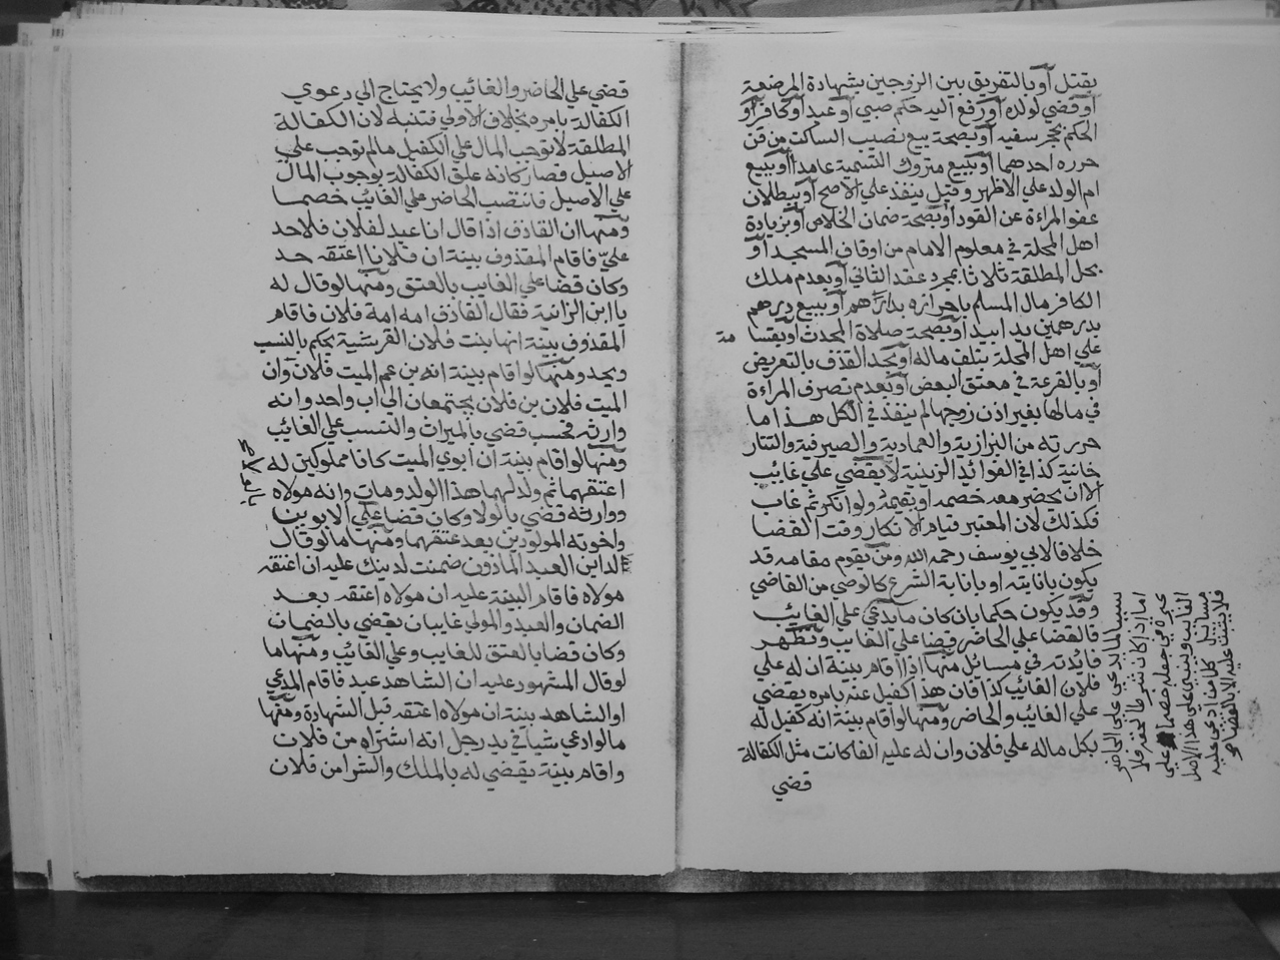 يقتل أو بالتفريق بين الزوجين بشهادة المرضعة
أو قضي لولده أو رفع اليه حكم صبي أو عبد أو كافر أو
الحكم بحجر سفيه أو بصحة بيع نصيب الساكت من قن
حرره احدهما أو ببيع متروك التسمية عامدا أو ببيع
ام الولد علي الاظهر وقيل ينفذ علي الاصح أو ببطلان
عفو المراءة عن القود أو بصحة ضمان الخلاص أو بزيادة
اهل المحلة في معلوم الامام من اوقاف المسجد أو
بحل المطلقة ثلاثا بمجرد عقد الثاني أو بعدم ملك
الكافر مال المسلم باحرازه بدارهم أو ببيع درهم
بدرهمين يدا بيد أو بصحة صلاة المحدث أو بقسا
مة
علي اهل المحلة بتلف ماله أو بحد القذف بالتعريض
أو بالقرعة في معتق البعض أو بعدم تصرف المراءة
في مالها بغير اذن زوجها لم ينفذ في الكل هذا ما
حررته من البزازية والعمادية والصيرفية والتتار
خانية كذا في الفوائد الزينية لا يقضي علي غايب
الا ان يحضر معه خصمه او يقيمه ولو انكر ثم غاب
فكذلك لان المعتبر قيام الانكار وقت القضا
خلافا لابي يوسف رحمه الله ومن يقوم مقامه قد
يكون بانابته او بانابة الشرع كالوصي من القاضي
وقد يكون حكما بان كان ما يدعي علي الغايب
سببا لما يدعي علي الحاضر
اما اذا كان شرطا لحقه فلا
عبرة في جعله خصما علي
الغايب ويبتني علي هذا الاصل
مسايل
فالقضا علي الحاضر قضا علي الغايب وتظهر
فايدته في مسايل منها اذا اقام بينة ان له علي
فلان الغايب كذا فان هذا كفيل عنه بامره يقضي
علي الغايب والحاضر ومنها لو اقام بينة انه كفيل له
بكل ماله علي فلان وان له عليه الفا كانت مثل الكفالة
قضي
قضي علي الحاضر والغايب ولا يحتاج الي دعوي
الكفالة بامره بخلاف الاولي فتنبه لان الكفالة
المطلقة لا توجب المال علي الكفيل ما لم توجب علي
الاصيل فصار كانه علق الكفالة بوجوب المال
علي الاصيل فانتصب الحاضر علي الغايب خصما
ومنها ان القاذف اذا قال انا عبد لفلان فلا حد
علي فاقام المقذوف بينة ان فلانا اعتقه حد
وكان قضا علي الغايب بالعتق ومنها لو قال له
يا ابن الزانية فقال القاذف امه امة فلان فاقام
المقذوف بينة انها بنت فلان القرشية يحكم بالنسب
ويحد ومنها لو اقام بينة انه بن عم الميت فلان وان
الميت فلان بن فلان يجتمعان الي اب واحد وانه
وارثه فحسب قضي بالميراث والنسب علي الغايب
ومنها لو اقام بينة ان ابوي الميت كانا مملوكين له
اعتقهما ثم ولد لهما هذا الولد ومات وانه مولاه
ووارثه قضي بالولا وكان قضا علي الابوين
بالولا
واخوته المولودين بعد عتقهما ومنها ما لو قال
لداين العبد الماذون ضمنت لدينك عليه ان اعتقه
مولاه فاقام البينة عليه ان مولاه اعتقه بعد
الضمان والعبد والمولي غايبان يقضي بالضمان
وكان قضا بالعتق للغايب وعلي الغايب ومنها ما
لو قال المشهود عليه ان الشاهد عبد فاقام المدعي
او الشاهد بينة ان مولاه اعتقه قبل الشهادة ومنها
ما لو ادعي شيا في يد رجل انه اشتراه من فلان
واقام بينة يقضي له بالملك والشرا من فلان